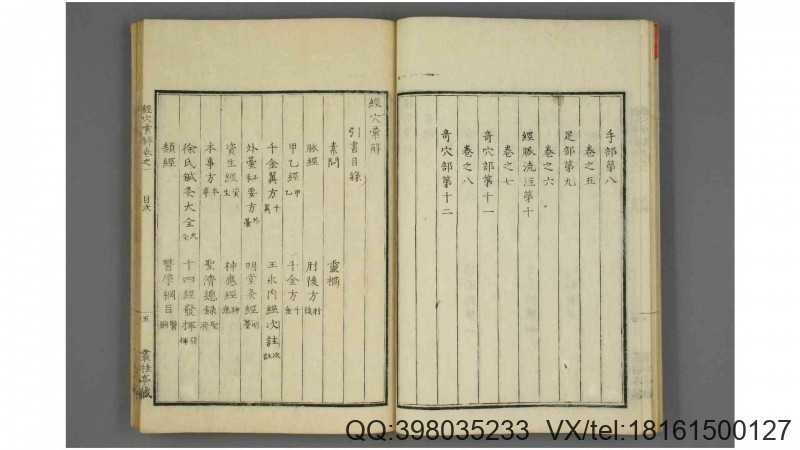 手部第八
卷之五
足部第九
卷之六
經脈流注第十
卷之七
奇穴部第十一
卷之八
奇穴部第十二
經穴彙解
引書目錄
素問 靈樞
脈經 肘後方肘後
甲乙經甲乙 千金方千金
千金翼方千翼 王氷內經次註次註
外臺秘要方外臺 明堂灸經明
資生經資生 神應經神應
本事方本事 聖濟總錄聖濟
徐氏鍼灸大全大全 十四經發揮發揮
類經 醫學綱目醫綱
經穴彙解卷之一 目次 五 叢桂亭藏
QQ:398035233 VX/tel:18161500127